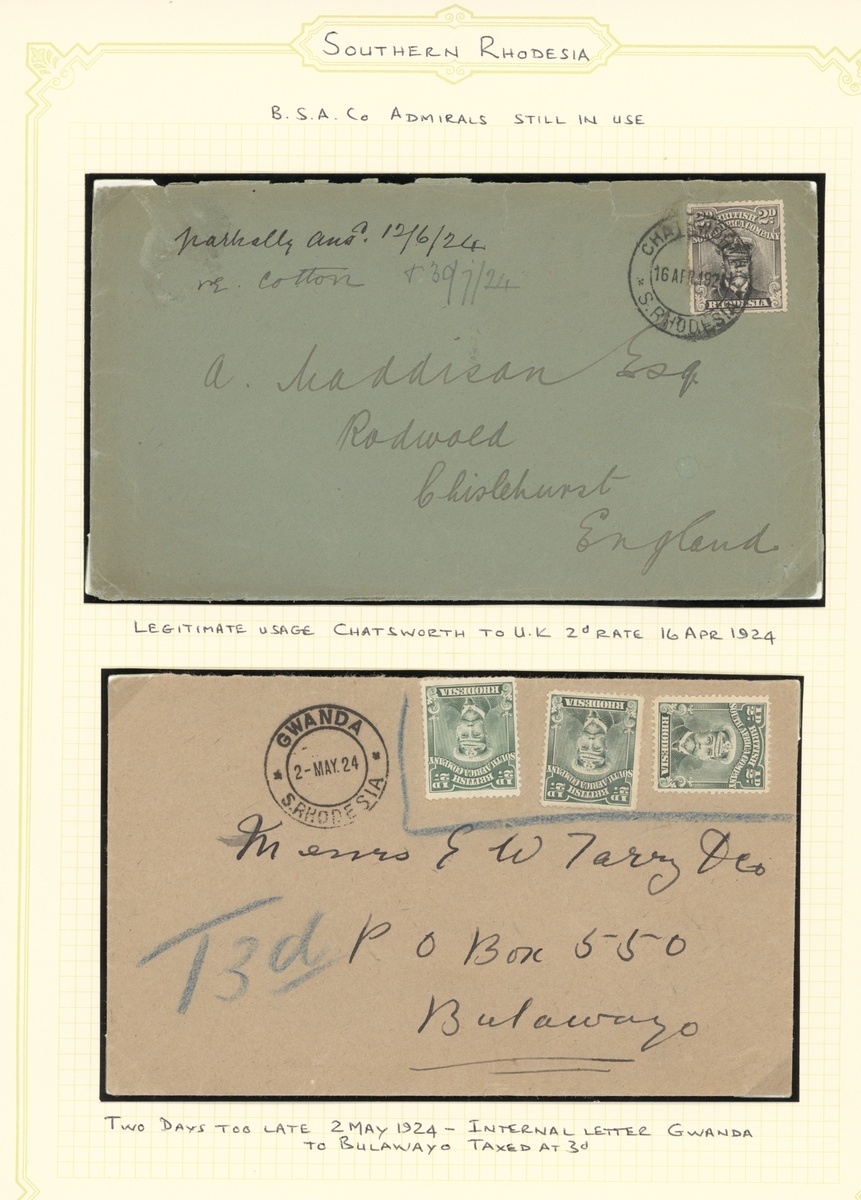 SOUTHERN RHODESIA
B.S.A. Co ADMIRALS STILL IN USE
partially ansd. 12/6/24
re. cotton & 30/7/24
2D BRITISH 2D
SOUTH AFRICA COMPANY
RHODESIA
CHATSWORTH
16 APR 192
S. RHODESIA
A. Maddison Esq
Rodwold
Chislehurst
England
LEGITIMATE USAGE CHATSWORTH TO U.K 2d RATE 16 APR 1924
GWANDA
2-MAY.24
S.RHODESIA
½D BRITISH ½D
SOUTH AFRICA COMPANY
RHODESIA
½D BRITISH ½D
SOUTH AFRICA COMPANY
RHODESIA
½D BRITISH ½D
SOUTH AFRICA COMPANY
RHODESIA
Messrs E W Tarry & Co
T3d
P O Box 550
Bulawayo
TWO DAYS TOO LATE 2 MAY 1924 - INTERNAL LETTER GWANDA
TO BULAWAYO TAXED AT 3d